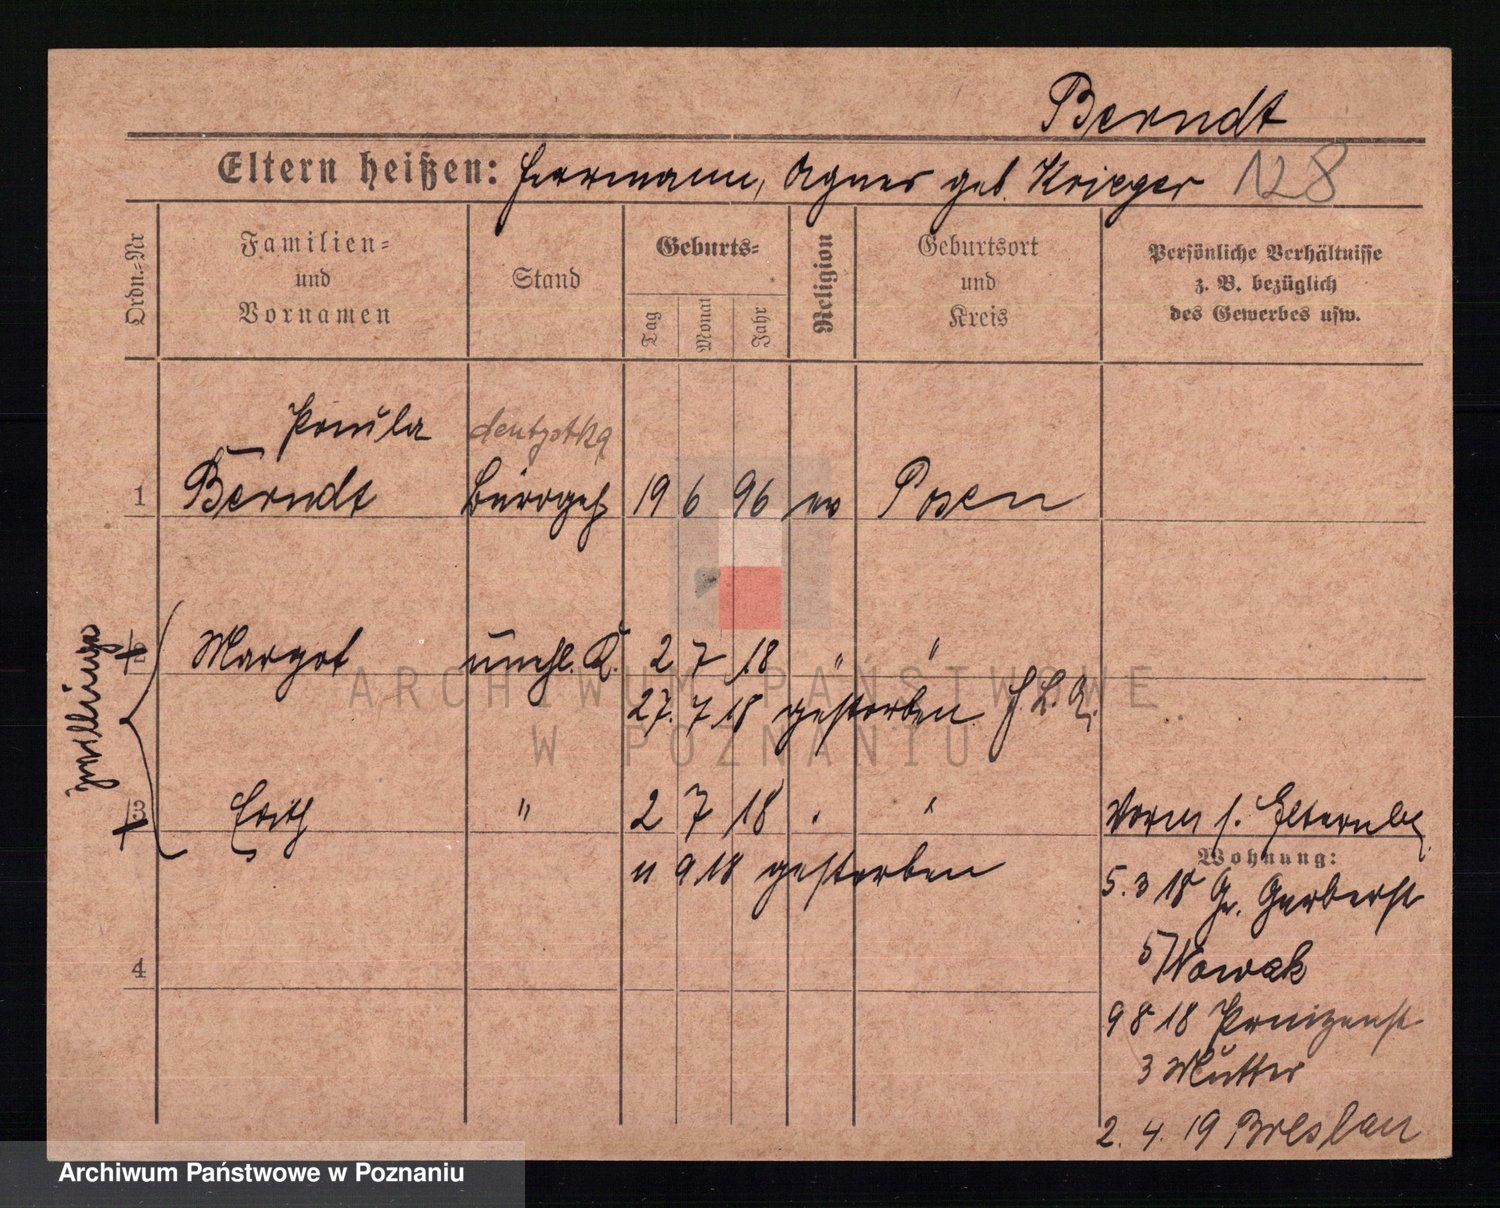 Berndt
Eltern heißen: Herrmann, Agnes geb. Krieger 128
Ordn.-Nr
Familien- und Vornamen
Stand
Geburts-
Tag
Monat
Jahr
Religion
Geburtsort und Kreis
Persönliche Verhältnisse z. B. bezüglich des Gewerbes usw.
Paula
1 Berndt Bürogeh 19 6 96 ev Posen
Zwillinge
2 Margot unehl. K. 2 7 18 " "
27. 7 18 gestorben
3 " 2 7 18
Vorm s.
11 9 18 gestorben
Wohnung:
5. 3 18 Gr. Gerberst
5 Nowak
4
9 8 18 Prinzenst
3 Mutter
2. 4. 19 Breslau
ARCHIWUM PAŃSTWOWE
W POZNANIU
Archiwum Państwowe w Poznaniu